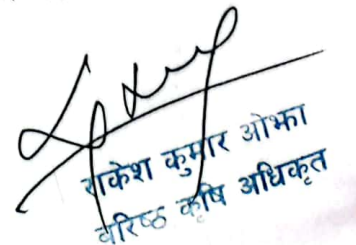 राकेश कुमार ओझा
वरिष्ठ कृषि अधिकृत